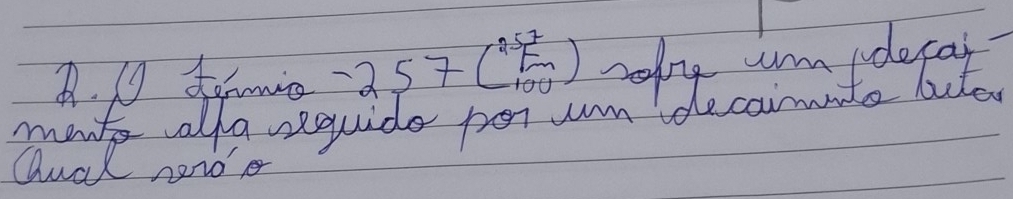 2. O férmio -257 (²⁵⁷Fm₁₀₀) sofre um decai-
mento alfa seguido por um decaimento beta.
Qual será o